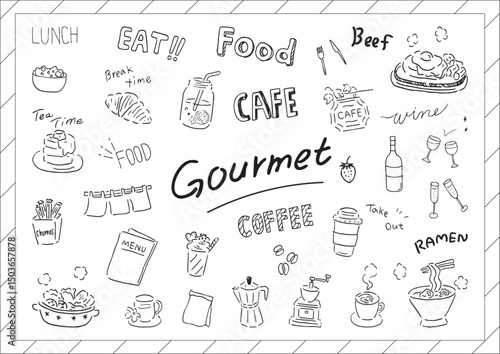 LUNCH
EAT!!
Food
Beef
Break
time
CAFE
CAFE
wine
Tea
Time
FOOD
Gourmet
churros
COFFEE
Take
Out
MENU
RAMEN
Adobe Stock | #1503657878